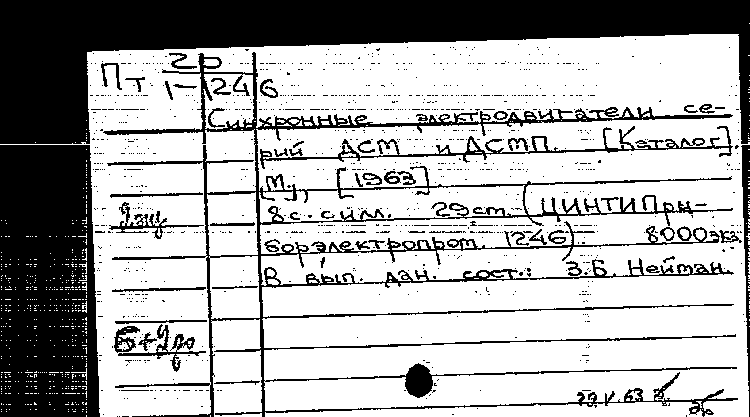 Пт 2р
1-1246
Синхронные электродвигатели се-
рий ДСМ и ДСМП. - [Каталог].
[М.], [1963].
8 с. с илл. 29 см. (ЦИНТИПри-
борэлектропром. 1246). 8000 экз.
В вып. дан. сост.: З.Б. Нейман.
29.V.63